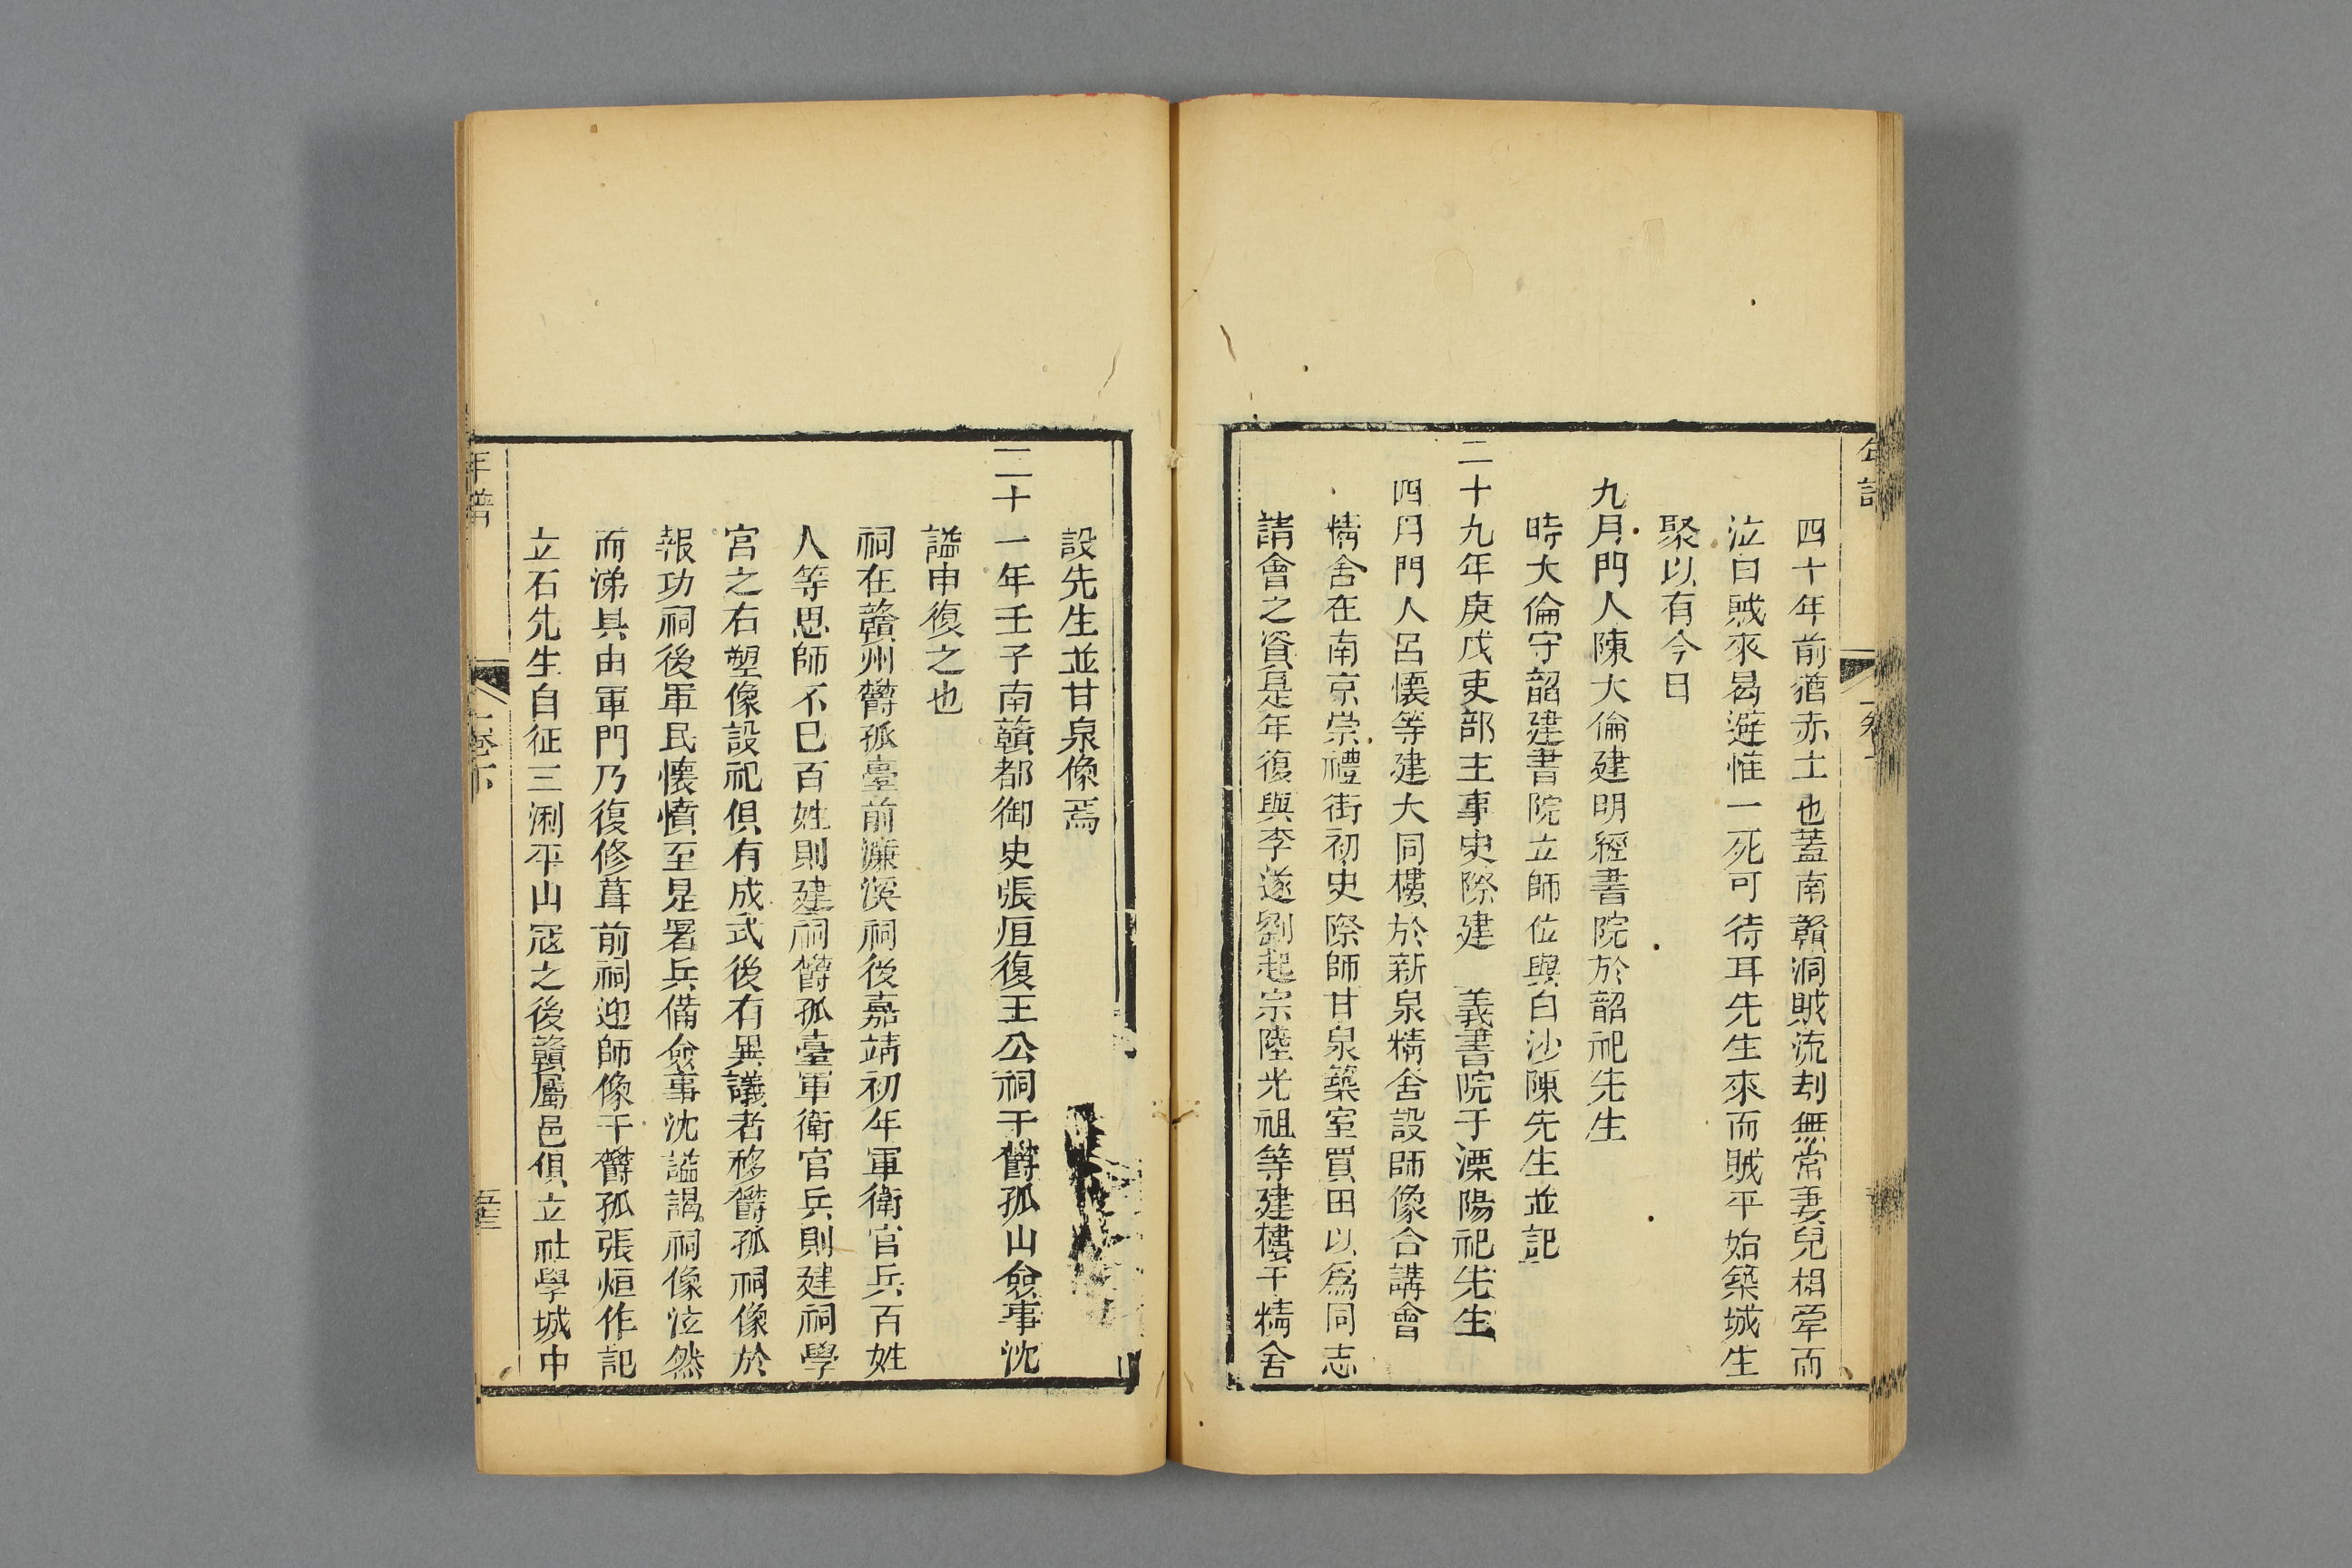 四十年前猶赤土也蓋南贛洞賊流刼無常妻兒相牽而
泣曰賊來曷避惟一死可待耳先生來而賊平始築城生
聚以有今日
九月門人陳大倫建明經書院於韶祀先生
時大倫守韶建書院立師位與白沙陳先生並記
二十九年庚戌吏部主事史際建 義書院于溧陽祀先生
四月門人呂懷等建大同樓於新泉精舍設師像合講會
精舍在南京崇禮街初史際師甘泉築室買田以爲同志
講會之資是年復與李遂劉起宗陸光祖等建樓于精舍
設先生並甘泉像焉
三十一年壬子南贛都御史張烜復王公祠于欝孤山僉事沈
謐申復之也
祠在贛州欝孤臺前濂溪祠後嘉靖初年軍衛官兵百姓
人等思師不巳百姓則建祠欝孤臺軍衛官兵則建祠學
宮之右塑像設祀俱有成式後有異議者移欝孤祠像於
報功祠後軍民懷憤至是署兵備僉事沈謐謁祠像泣然
而涕具由軍門乃復修葺前祠迎師像于欝孤張烜作記
立石先生自征三浰平山寇之後贛屬邑俱立社學城中
年譜 卷下 五十三